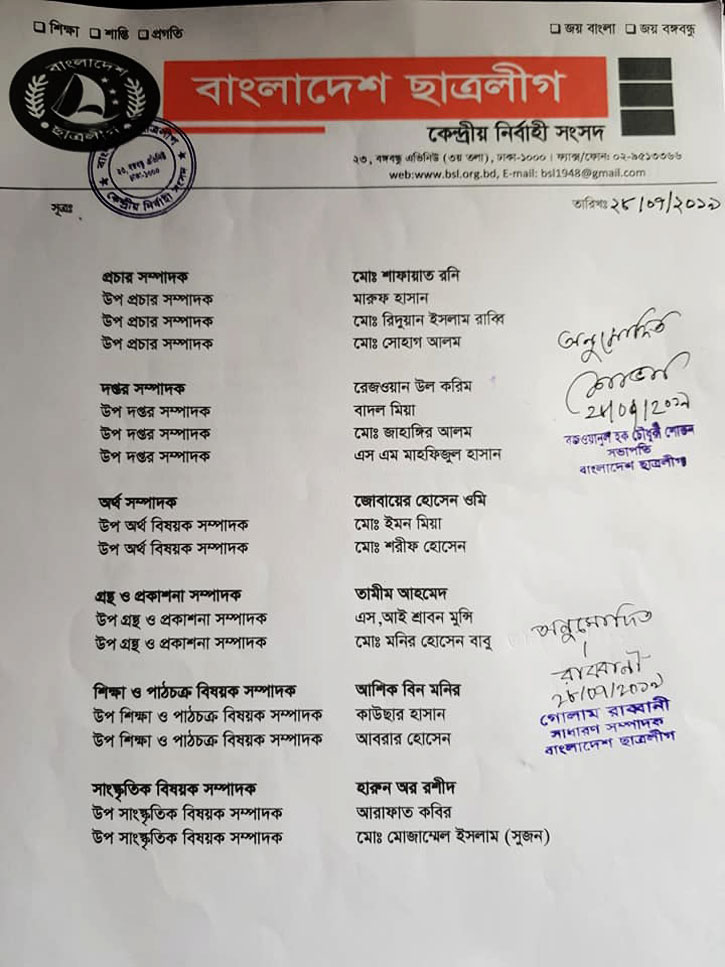 শিক্ষা শান্তি প্রগতি
জয় বাংলা জয় বঙ্গবন্ধু
বাংলাদেশ
ছাত্রলীগ
বাংলাদেশ ছাত্রলীগ
কেন্দ্রীয় নির্বাহী সংসদ
২৩, বঙ্গবন্ধু এভিনিউ (৩য় তলা), ঢাকা-১০০০। ফ্যাক্স/ফোন: ০২-৯৫১৩৩৬৬
web:www.bsl.org.bd, E-mail: bsl1948@gmail.com
২৩, বঙ্গবন্ধু এভিনিউ
ঢাকা-১০০০
কেন্দ্রীয় নির্বাহী সংসদ
সূত্রঃ
তারিখঃ ২৮/০৭/২০১৯
প্রচার সম্পাদক মোঃ শাফায়াত রনি
উপ প্রচার সম্পাদক মারুফ হাসান
উপ প্রচার সম্পাদক মোঃ রিদুয়ান ইসলাম রাব্বি
উপ প্রচার সম্পাদক মোঃ সোহাগ আলম
দপ্তর সম্পাদক রেজওয়ান উল করিম
উপ দপ্তর সম্পাদক বাদল মিয়া
উপ দপ্তর সম্পাদক মোঃ জাহাঙ্গির আলম
উপ দপ্তর সম্পাদক এস এম মাহফিজুল হাসান
অনুমোদিত
শোভন
২৮/০৭/২০১৯
রেজওয়ানুল হক চৌধুরী শোভন
সভাপতি
বাংলাদেশ ছাত্রলীগ
অর্থ সম্পাদক জোবায়ের হোসেন ওমি
উপ অর্থ বিষয়ক সম্পাদক মোঃ ইমন মিয়া
উপ অর্থ বিষয়ক সম্পাদক মোঃ শরীফ হোসেন
গ্রন্থ ও প্রকাশনা সম্পাদক তামীম আহমেদ
উপ গ্রন্থ ও প্রকাশনা সম্পাদক এস,আই শ্রাবন মুন্সি
উপ গ্রন্থ ও প্রকাশনা সম্পাদক মোঃ মনির হোসেন বাবু
শিক্ষা ও পাঠচক্র বিষয়ক সম্পাদক আশিক বিন মনির
উপ শিক্ষা ও পাঠচক্র বিষয়ক সম্পাদক কাউছার হাসান
উপ শিক্ষা ও পাঠচক্র বিষয়ক সম্পাদক আবরার হোসেন
অনুমোদিত
রাব্বানী
২৮/০৭/২০১৯
গোলাম রাব্বানী
সাধারণ সম্পাদক
বাংলাদেশ ছাত্রলীগ
সাংস্কৃতিক বিষয়ক সম্পাদক হারুন অর রশীদ
উপ সাংস্কৃতিক বিষয়ক সম্পাদক আরাফাত কবির
উপ সাংস্কৃতিক বিষয়ক সম্পাদক মোঃ মোজাম্মেল ইসলাম (সুজন)